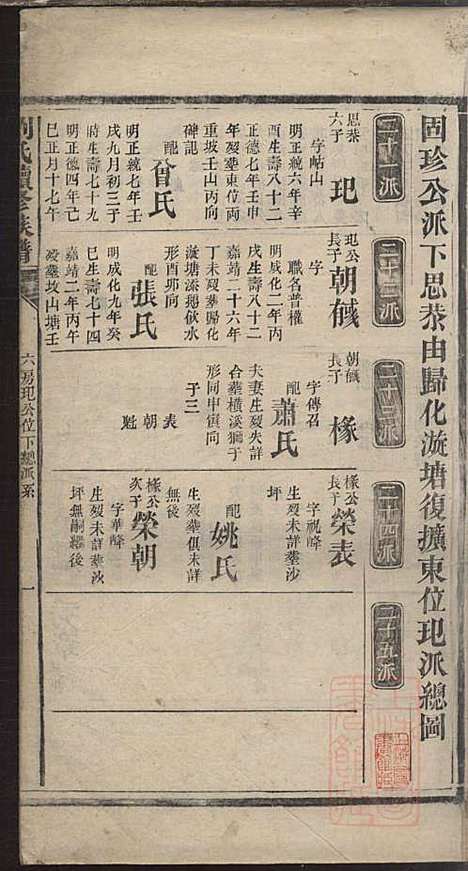 固珍公派下思恭由歸化漩塘復擴東位玘派總圖
二十一派
二十二派
二十三派
二十四派
二十五派
思恭
六子
玘
字帖山
明正統六年辛
酉生壽八十二
正德七年壬申
年歿塟東位兩
重坡壬山丙向
碑記
配
曾氏
明正統七年壬
戌九月初三子
時生壽七十九
明正德四年己
巳正月十七午
玘公
長子
朝
字
職名普權
明成化二年丙
戌生壽八十二
嘉靖二十六年
丁未歿塟歸化
漩塘溙㧾俽水
形酉卯向
配
張氏
明成化九年癸
巳生壽七十四
嘉靖二年丙午
歿塟坟山塘壬
朝
長子
椽
字傳召
配
蕭氏
夫妻生歿失詳
合塟橫溪獅子
形同申寅向
子三
表
朝
魁
椽公
長子
榮表
字視峰
生歿未詳塟沙
坪
配
姚氏
生歿塟俱未詳
無後
椽公
次子
榮朝
字華峰
生歿未詳塟沙
坪無嗣繼後
劉氏續修族譜
六房玘公位下總派系
一